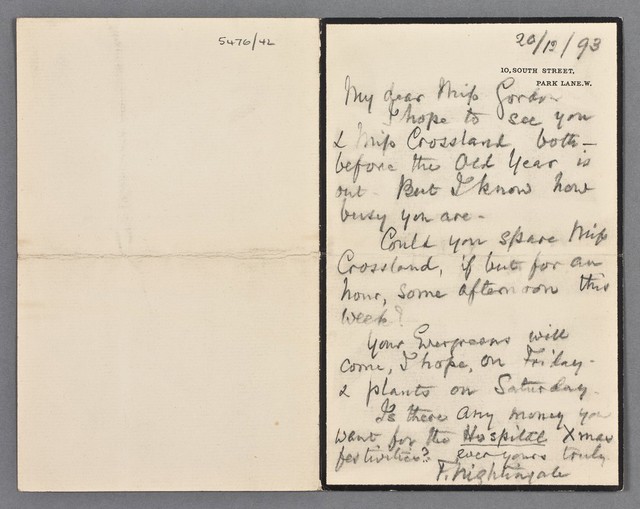 5476/42
20/12/93
10, SOUTH STREET,
PARK LANE. W.
My dear Miss Gordon
I hope to see you
& Miss Crossland both -
before the Old Year is
out - But I know how
busy you are -
Could you spare Miss
Crossland, if but for an
hour, some afternoon this
week?
Your Evergreens will
come, I hope, on Friday -
& plants on Saturday -
Is there any money you
want for the Hospital Xmas
festivities? ever yours truly
F. Nightingale